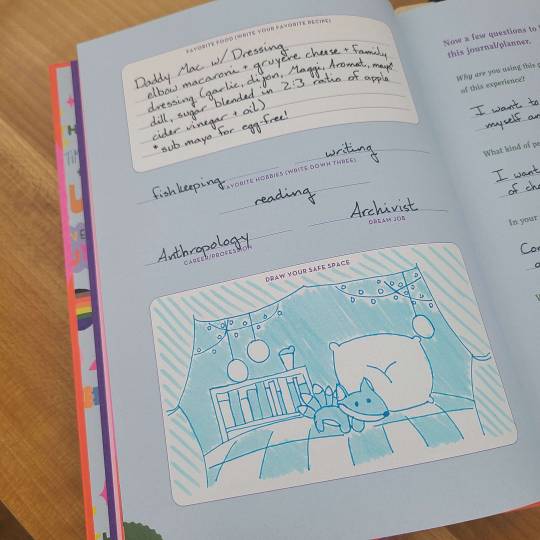 FAVORITE FOOD (WRITE YOUR FAVORITE RECIPE)
Daddy Mac w/ Dressing
elbow macaroni + gruyére cheese + family
dressing (garlic, dijon, Maggi, Aromat, mayo*
dill, sugar blended in 2:3 ratio of apple
cider vinegar + oil)
* sub mayo for egg-free!
fishkeeping
writing
FAVORITE HOBBIES (WRITE DOWN THREE)
reading
Anthropology
CAREER/PROFESSION
Archivist
DREAM JOB
DRAW YOUR SAFE SPACE
Now a few questions to
this journal/planner.
Why are you using this
of this experience?
I want to
myself an
What kind of pe
I want
of cha
In your
Con